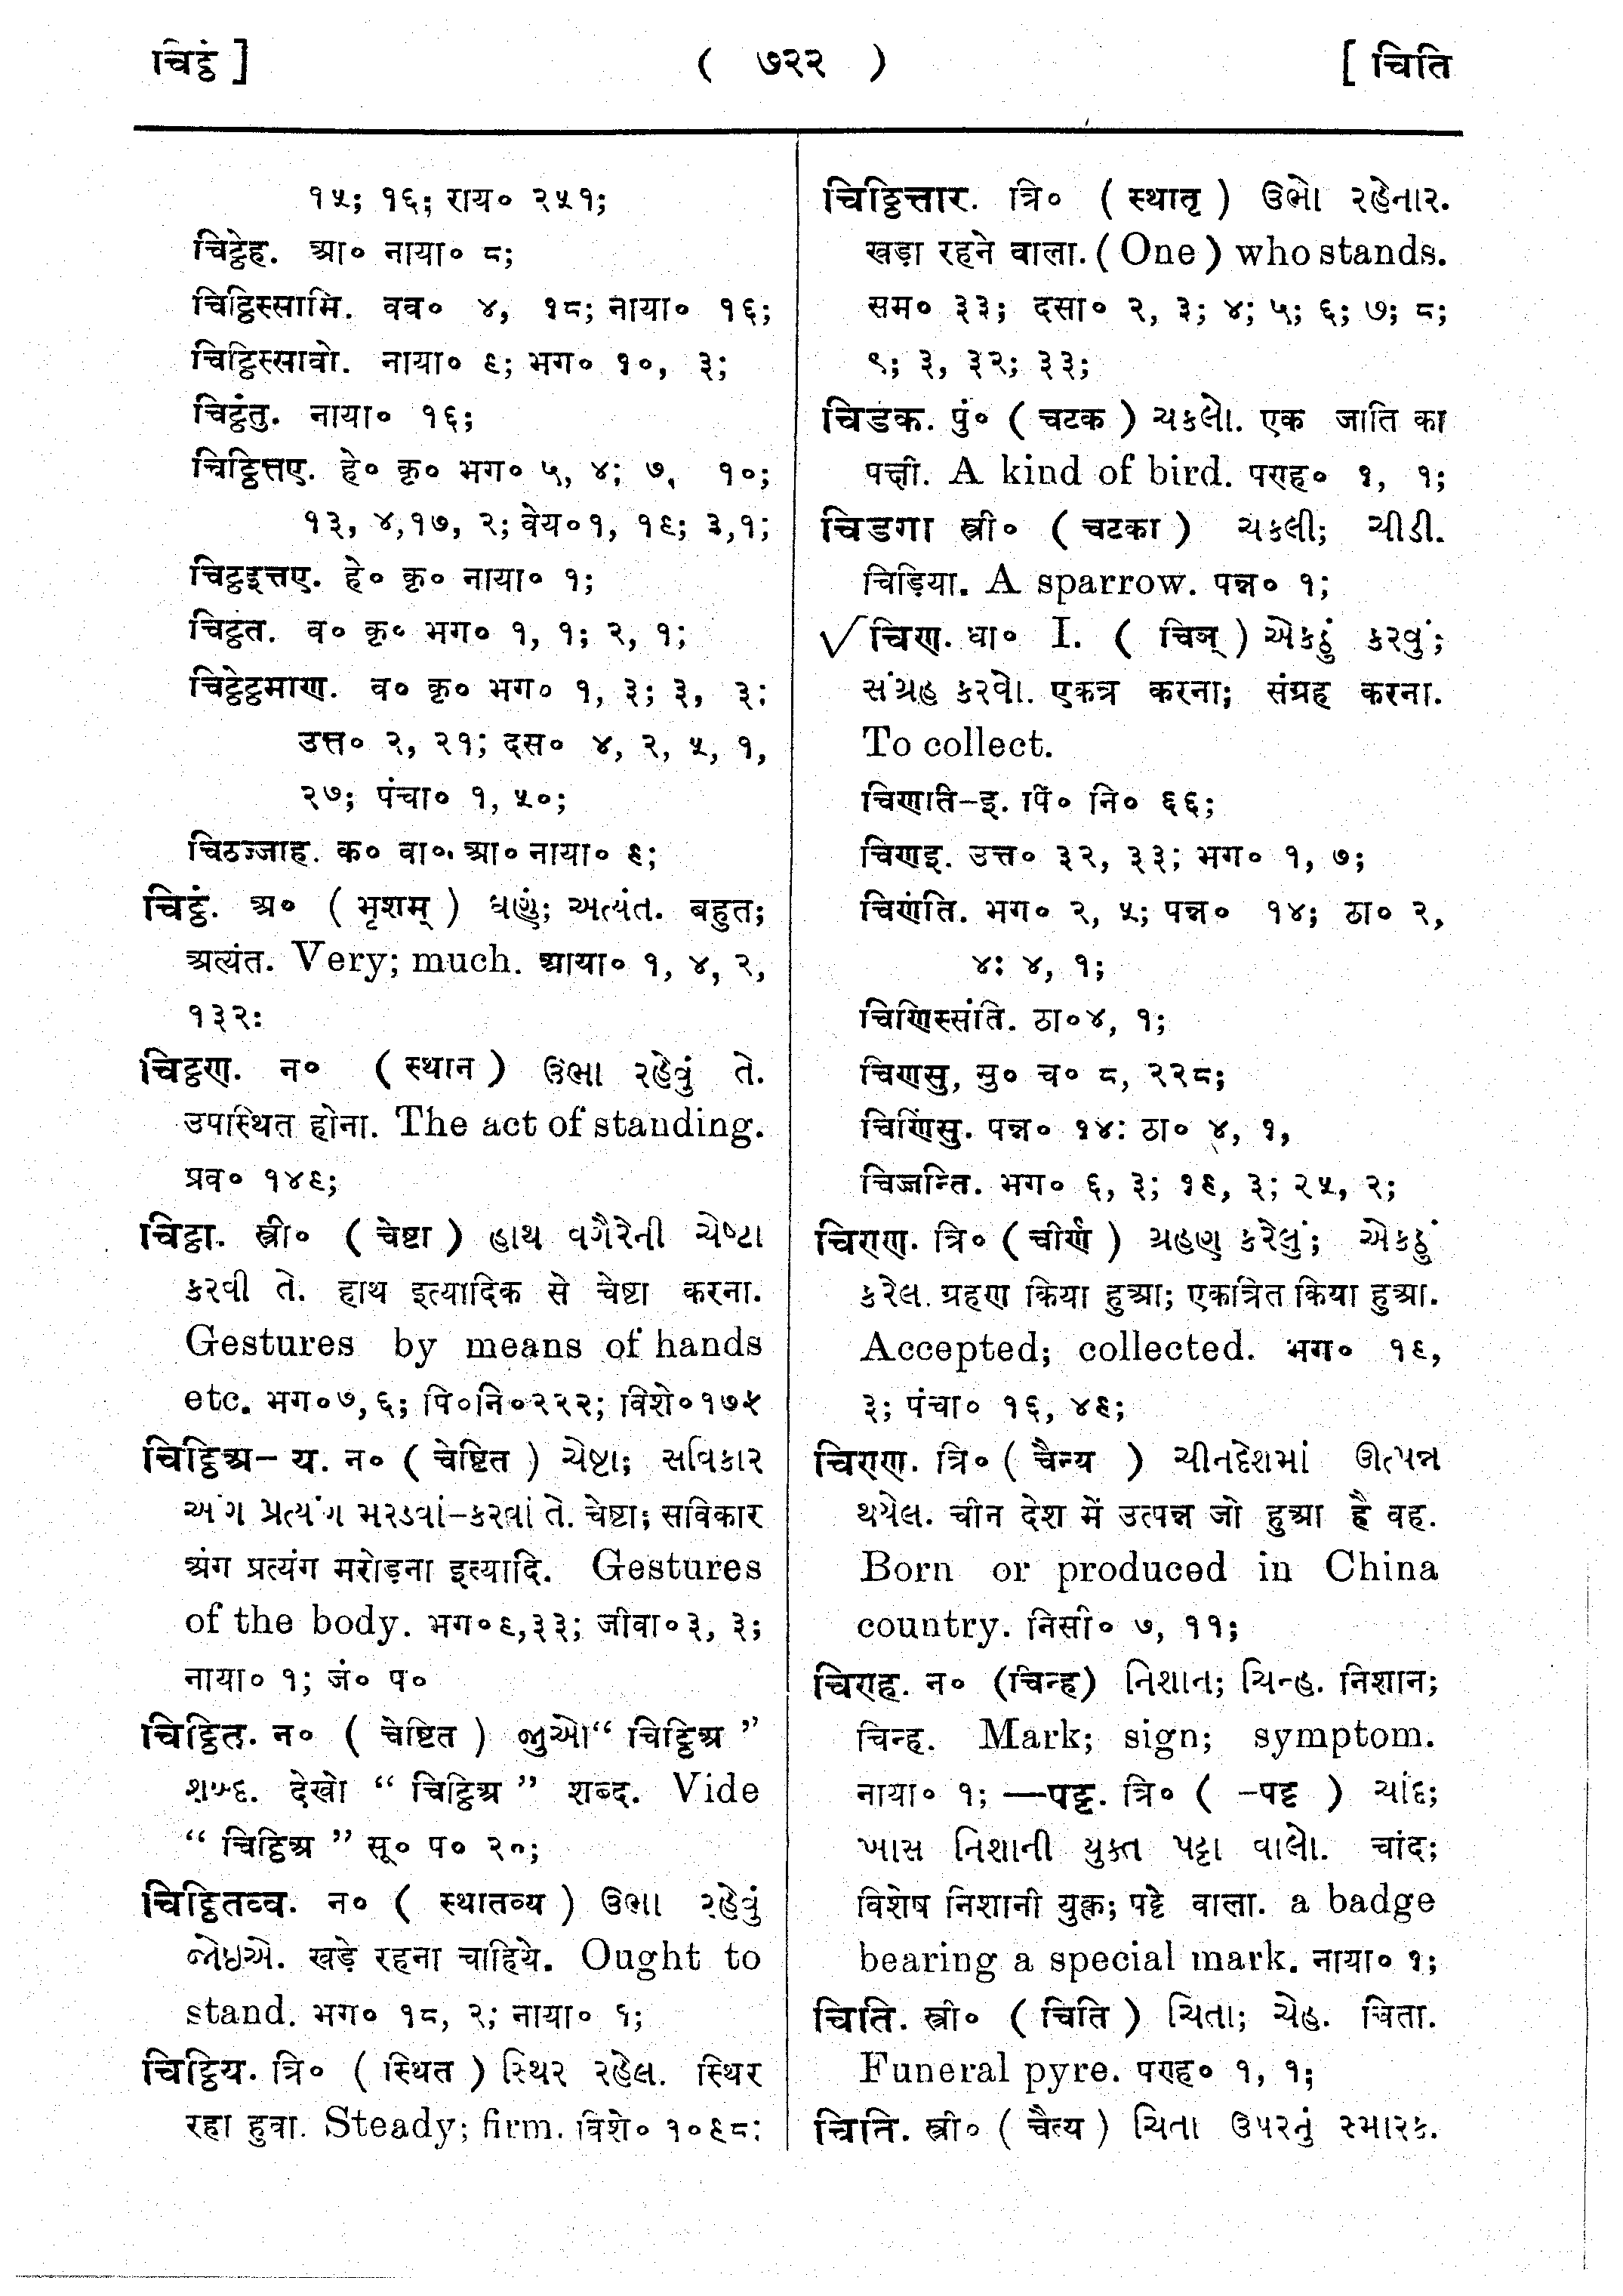 चिट्ठं ]
( ७२२ )
[ चिति
१५; १६; राय० २५१;
चिट्ठेह. आ० नाया० ८;
चिट्ठिस्सामि. वव० ४, १८; नाया० १६;
चिट्ठिस्सावो. नाया० ६; भग० १०, ३;
चिट्ठंतु. नाया० १६;
चिट्ठित्तए. हे० कृ० भग० ५, ४; ७, १०;
१३, ४,१७, २; वेय०१, १६; ३,१;
चिट्ठइत्तए. हे० कृ० नाया० १;
चिट्ठत. व० कृ० भग० १, १; २, १;
चिट्ठेट्ठमाण. व० कृ० भग० १, ३; ३, ३:
उत्त० २, २१; दस० ४, २, ५, १,
२७; पंचा० १, ५०;
चिठज्जाह. क० वा०. आ० नाया० ६;
चिट्ठं. अ० ( भृशम् ) ઘણું; અત્યંત. बहुत;
अत्यंत. Very; much. आया० १, ४, २,
१३२:
चिट्ठण. न० ( स्थान ) ઉભા રહેવું તે.
उपस्थित होना. The act of standing.
प्रव० १४६;
चिट्ठा. स्त्री० ( चेष्टा ) હાથ વગૈરેની ચેષ્ટા
કરવી તે. हाथ इत्यादिक से चेष्टा करना.
Gestures by means of hands
etc. भग०७,६; पि०नि०२२२; विशे०१७५
चिट्ठिअ- य. न० ( चेष्टित ) ચેષ્ટા; સવિકાર
અંગ પ્રત્યંગ મરડવાં-કરવાં તે. चेष्टा; सविकार
अंग प्रत्यंग मरोड़ना इत्यादि. Gestures
of the body. भग०६,३३; जीवा०३, ३;
नाया० १; जं० प०
चिट्ठित. न० ( चेष्टित ) જુઓ“ चिट्ठिअ ”
શબ્દ. देखो “ चिट्ठिअ ” शब्द. Vide
“ चिट्ठिअ ” सू० प० २०;
चिट्ठितव्व. न० ( स्थातव्य ) ઉભા રહેવું
જોઇએ. खड़े रहना चाहिये. Ought to
stand. भग० १८, २; नाया० १;
चिट्ठिय. त्रि० ( स्थित ) સ્થિર રહેલ. स्थिर
रहा हुवा. Steady; firm. विशे० १०६८:
चिट्ठित्तार. त्रि० ( स्थातृ ) ઉભો રહેનાર.
खड़ा रहने वाला. ( One ) who stands.
सम० ३३; दसा० २, ३; ४; ५; ६; ७; ८;
९; ३, ३२; ३३;
चिडक. पुं० ( चटक ) ચકલો. एक जाति का
पक्षी. A kind of bird. पराह० १, १;
चिडगा स्त्री० ( चटका ) ચકલી; ચીડી.
चिड़िया. A sparrow. पन्न० १;
√ चिण. धा० I. ( चिञ् ) એકઠું કરવું;
સંગ્રહ કરવો. एकत्र करना; संग्रह करना.
To collect.
चिणाति-इ. पिं० नि० ६६;
चिणइ. उत्त० ३२, ३३; भग० १, ७;
चिणंति. भग० २, ५; पन्न० १४; ठा० २,
४: ४, १;
चिणिस्संति. ठा०४, १;
चिणसु, सु० च० ८, २२८;
चिणिंसु. पन्न० १४: ठा० ४, १,
चिज्जन्ति. भग० ६, ३; १६, ३; २५, २;
चिराण. त्रि० ( चीर्ण ) ગ્રહણ કરેલું; એકઠું
કરેલ. ग्रहण किया हुआ; एकत्रित किया हुआ.
Accepted; collected. भग० १६,
३; पंचा० १६, ४६;
चिराण. त्रि० ( चैन्य ) ચીનદેશમાં ઊત્પન્ન
થયેલ. चीन देश में उत्पन्न जो हुआ है वह.
Born or produced in China
country. निसी० ७, ११;
चिराह. न० (चिन्ह) નિશાન; ચિન્હ. निशान;
चिन्ह. Mark; sign; symptom.
नाया० १; —पट्ट. त्रि० ( -पट्ट ) ચાંદ;
ખાસ નિશાની યુક્ત પટ્ટા વાલો. चांद;
विशेष निशानी युक्त; पट्टे वाला. a badge
bearing a special mark. नाया० १;
चिति. स्त्री० ( चिति ) ચિતા; ચેહ. चिता.
Funeral pyre. पराह० १, १;
चिति. स्त्री० ( चैत्य ) ચિતા ઉપરનું સ્મારક.